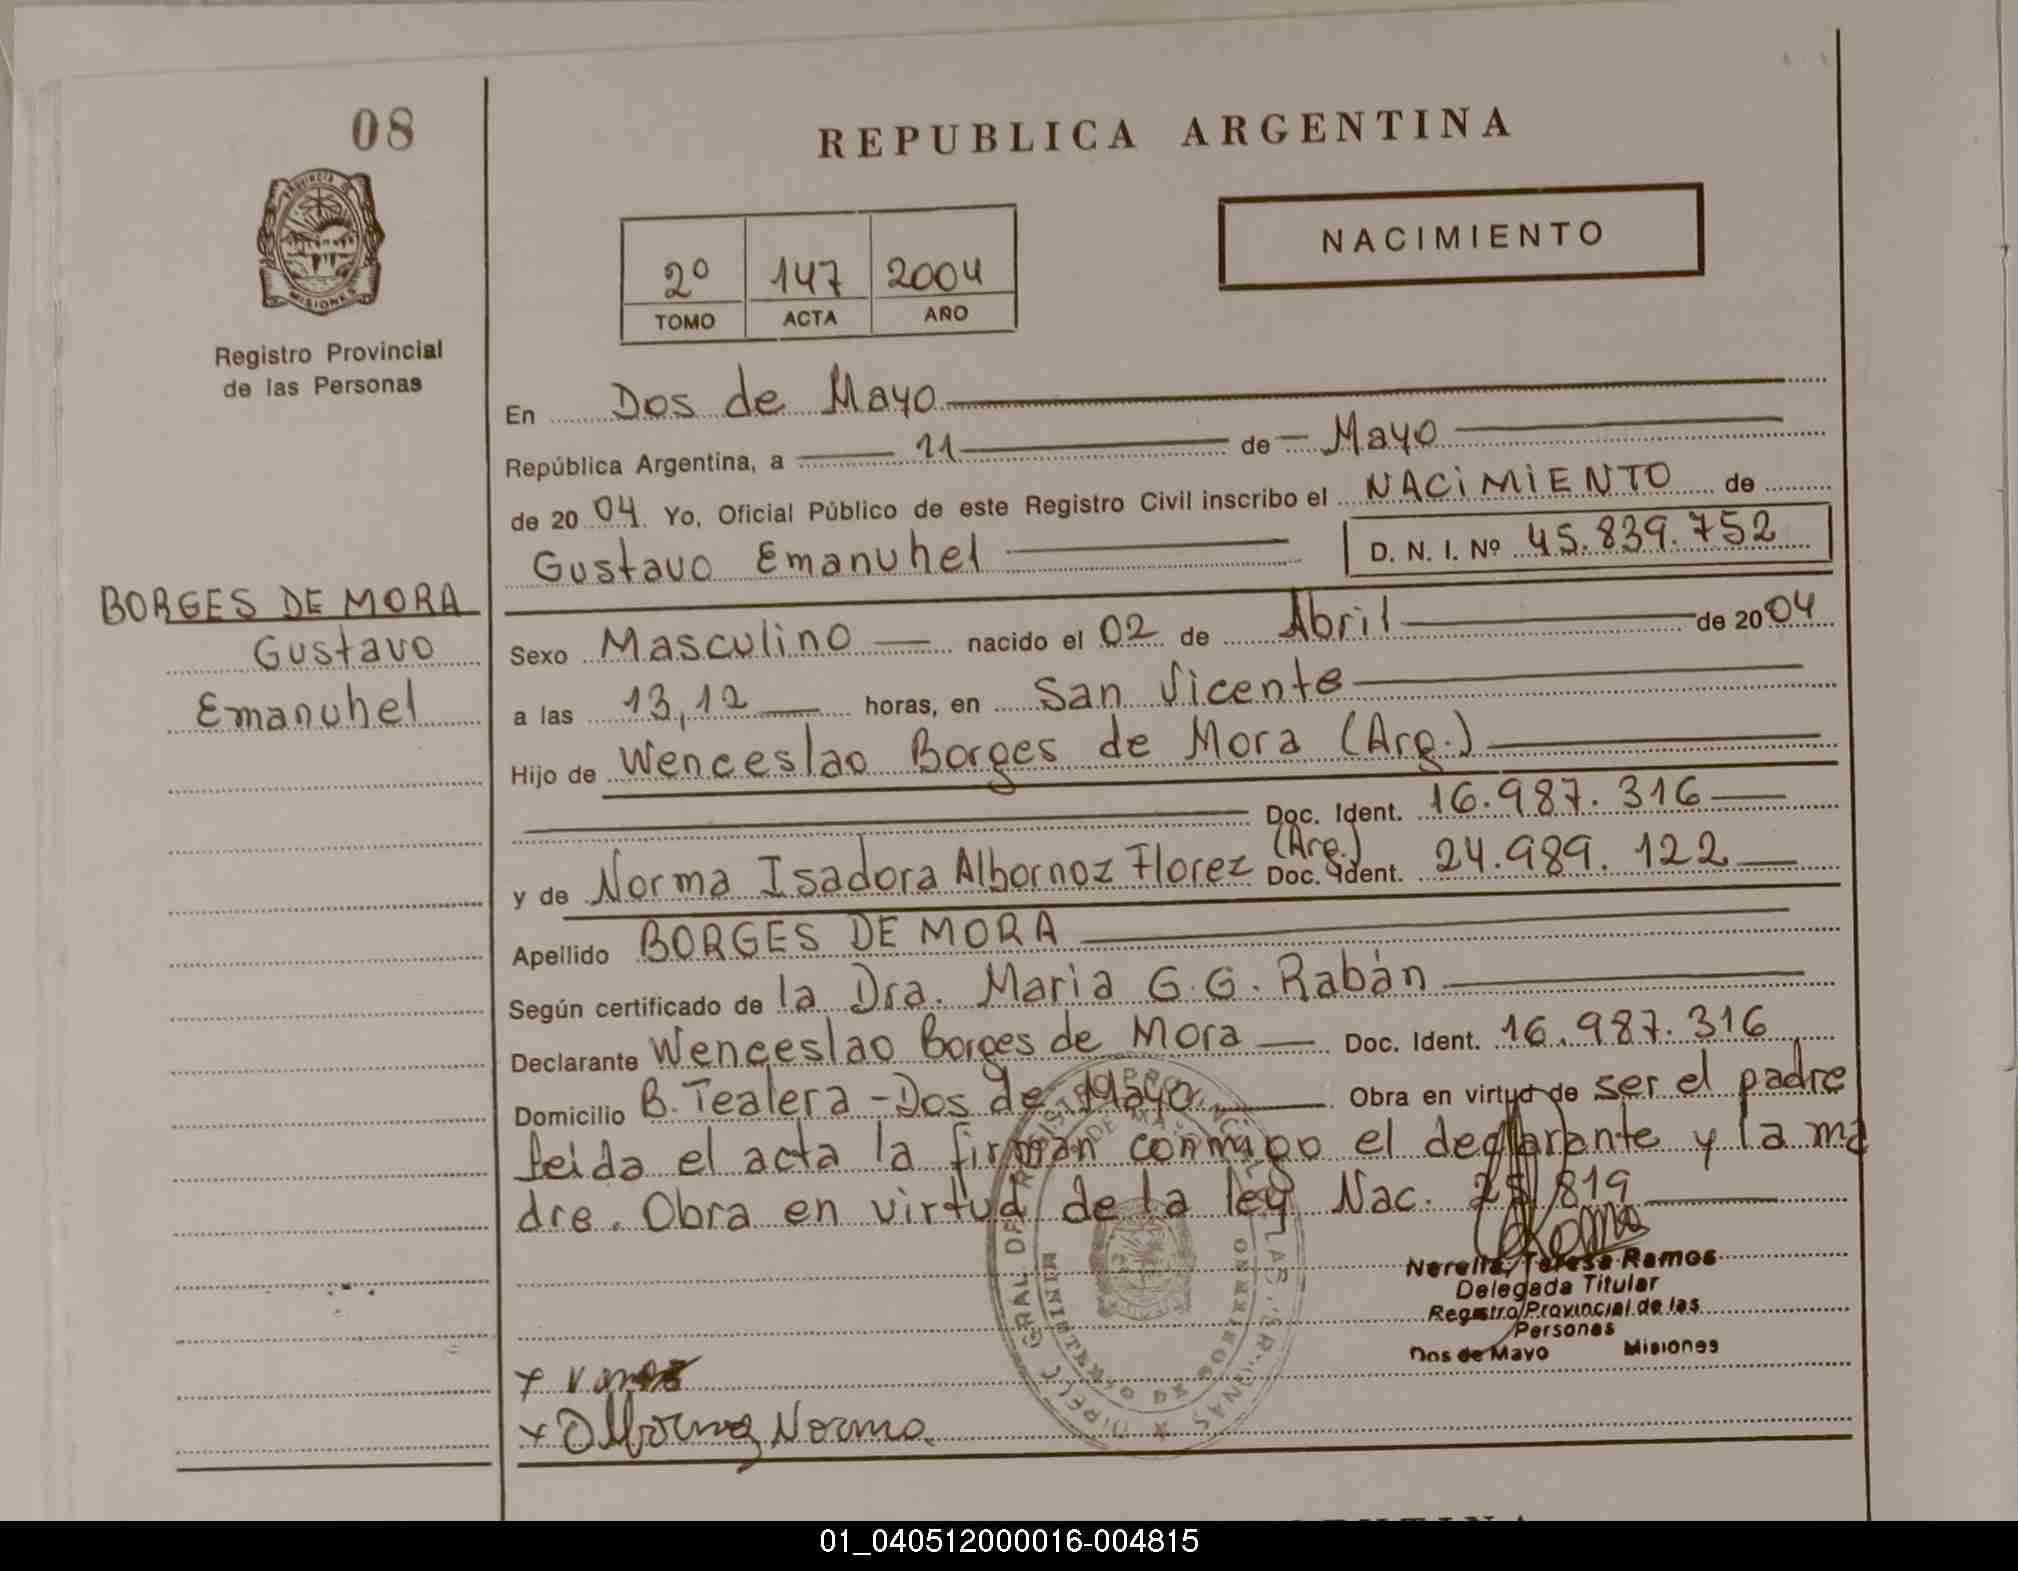 08
PROVINCIA DE
MISIONES
Registro Provincial
de las Personas
BORGES DE MORA
Gustavo
Emanuhel
REPUBLICA ARGENTINA
NACIMIENTO
2º 147 2004
TOMO ACTA AÑO
En Dos de Mayo
República Argentina, a 11 de Mayo
de 2004. Yo, Oficial Público de este Registro Civil inscribo el NACIMIENTO de
Gustavo Emanuhel D. N. I. Nº 45.839.752
Sexo Masculino nacido el 02 de Abril de 2004
a las 13,12 horas, en San Vicente
Hijo de Wenceslao Borges de Mora (Arg.)
Doc. Ident. 16.987.316
(Arg.)
y de Norma Isadora Albornoz Florez Doc. Ident. 24.989.122
Apellido BORGES DE MORA
Según certificado de la Dra. Maria G.G. Rabán
Declarante Wenceslao Borges de Mora Doc. Ident. 16.987.316
Domicilio B. Tealera - Dos de Mayo Obra en virtud de ser el padre
Leida el acta la firman conmigo el declarante y la ma
dre. Obra en virtud de la ley Nac. 25.819
Teresa Ramos
Delegada Titular
Registro Provincial de las
Personas
Dos de Mayo Misiones
MINISTERIO DE GOBIERNO
x
x Albornoz Norma
01_040512000016-004815